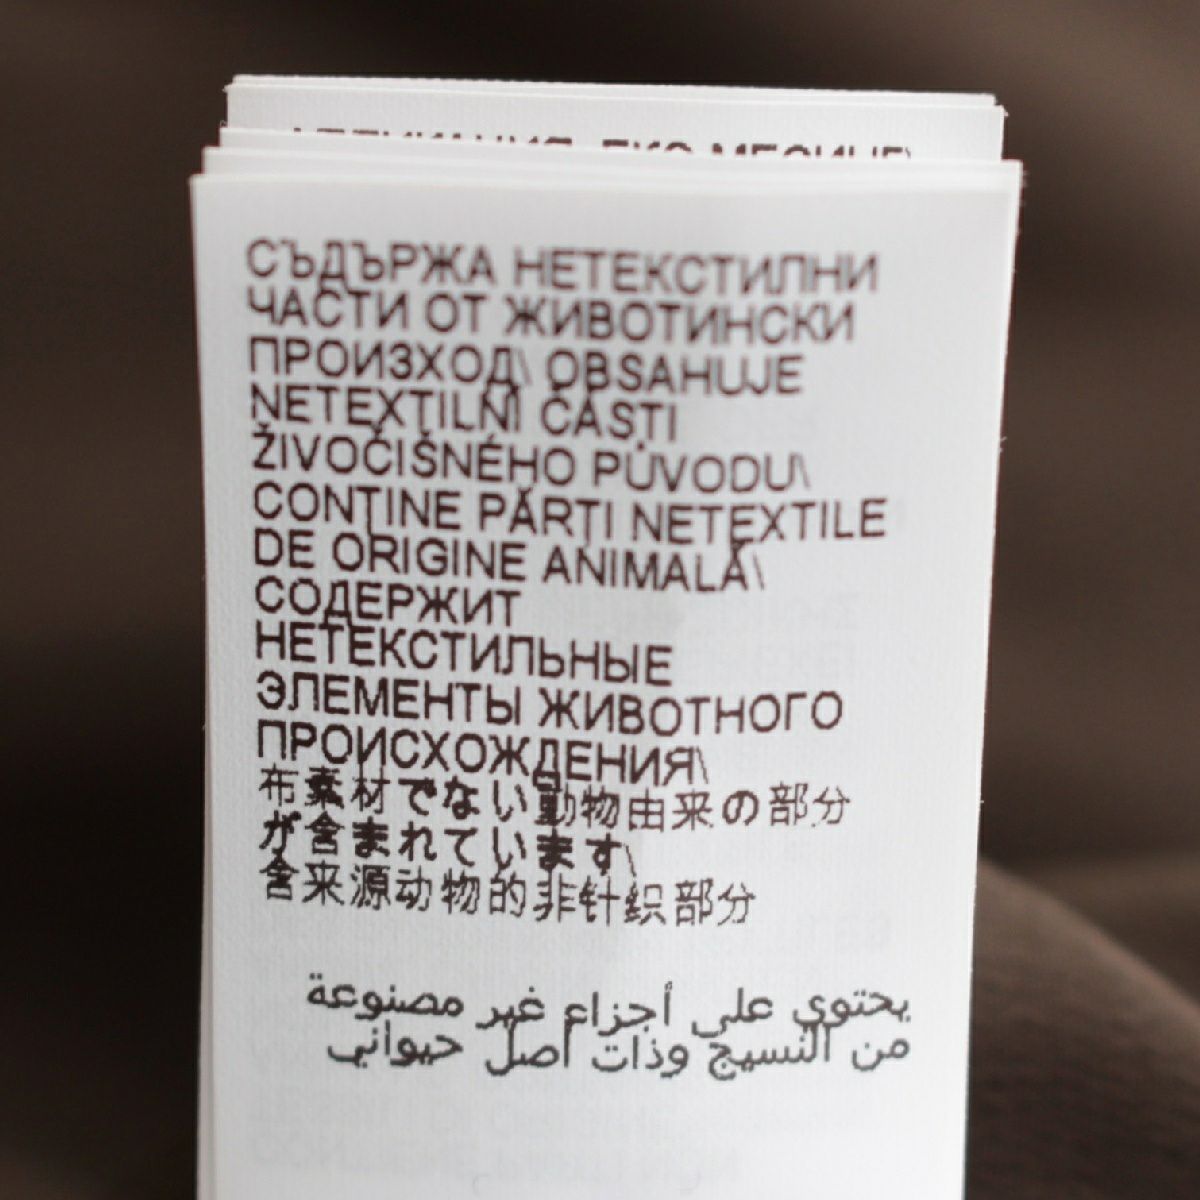 СЪДЪРЖА НЕТЕКСТИЛНИ
ЧАСТИ ОТ ЖИВОТИНСКИ
ПРОИЗХОД\ OBSAHUJE
NETEXTILNÍ ČÁSTI
ŽIVOČIŠNÉHO PŮVODU\
CONȚINE PĂRȚI NETEXTILE
DE ORIGINE ANIMALĂ\
СОДЕРЖИТ
НЕТЕКСТИЛЬНЫЕ
ЭЛЕМЕНТЫ ЖИВОТНОГО
ПРОИСХОЖДЕНИЯ\
布素材でない動物由来の部分
が含まれています\
含来源动物的非针织部分
يحتوي على أجزاء غير مصنوعة
من النسيج وذات أصل حيواني